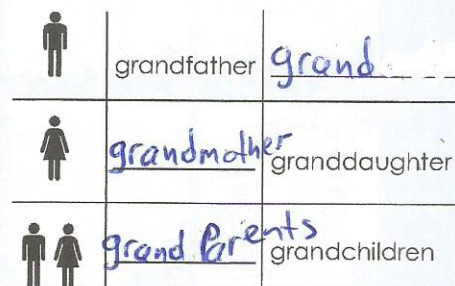 grandfather grand
grandmother granddaughter
grand Parents grandchildren